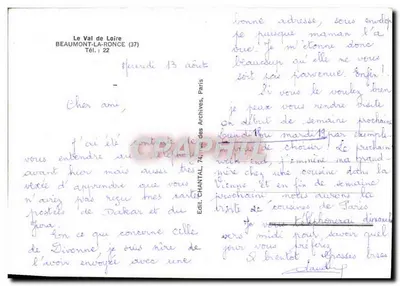 Le Val de Loire
BEAUMONT-LA-RONCE (37)
Tél. : 22
Mardi 13 août
Cher ami,
J'ai été
vous entendre
avant hier mais aussi très
d'apprendre que vous
n'aviez pas reçu mes cartes
postales de Dakar et du
Jura.
En ce qui concerne celle
de Divonne, je suis sûre de
l'avoir envoyée avec une
Edit. CHANTAL, 74, des Archives, Paris
bonne adresse, sous envelop
pe puisque maman l'a
vue. Je m'étonne donc
beaucoup qu'elle ne vous
soit pas parvenue. Enfin !
Si vous le voulez bien
je peux vous rendre visite
en début de semaine prochaine
lundi ou mardi par exemple.
choisir ! Le prochain
week end, j'emmène ma grand
mère chez une cousine dans la
Vienne et en fin de semaine
prochaine nous aurons la
visite de cousins de Paris
Je vous téléphonerai dimanche
vers midi pour savoir quel
jour vous préférez.
A bientôt. Grosses bises
CPARAMA